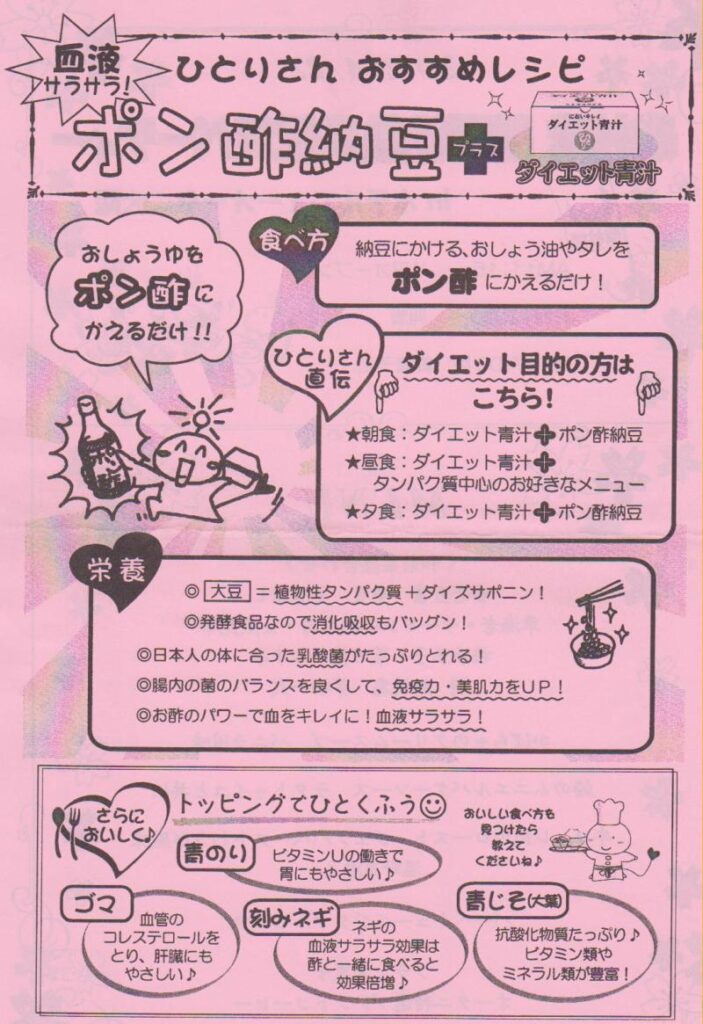 血液
サラサラ!
ひとりさん おすすめレシピ
ポン酢納豆
プラス
ダイエット青汁
ダイエット青汁
おしょうゆを
ポン酢に
かえるだけ!!
食べ方
納豆にかける、おしょう油やタレを
ポン酢にかえるだけ!
ひとりさん
直伝
ダイエット目的の方は
こちら!
★朝食:ダイエット青汁➕ポン酢納豆
★昼食:ダイエット青汁➕
タンパク質中心のお好きなメニュー
★夕食:ダイエット青汁➕ポン酢納豆
ポン酢
栄養
◎大豆=植物性タンパク質+ダイズサポニン!
◎発酵食品なので消化吸収もバツグン!
◎日本人の体に合った乳酸菌がたっぷりとれる!
◎腸内の菌のバランスを良くして、免疫力・美肌力をUP!
◎お酢のパワーで血をキレイに!血液サラサラ!
さらに
おいしく♪
トッピングでひとくふう
おいしい食べ方も
見つけたら
教えて
くださいね♪
青のり
ビタミンUの働きで
胃にもやさしい♪
ゴマ
血管の
コレステロールを
とり、肝臓にも
やさしい♪
刻みネギ
ネギの
血液サラサラ効果は
酢と一緒に食べると
効果倍増♪
青じそ(大葉)
抗酸化物質たっぷり♪
ビタミン類や
ミネラル類が豊富!